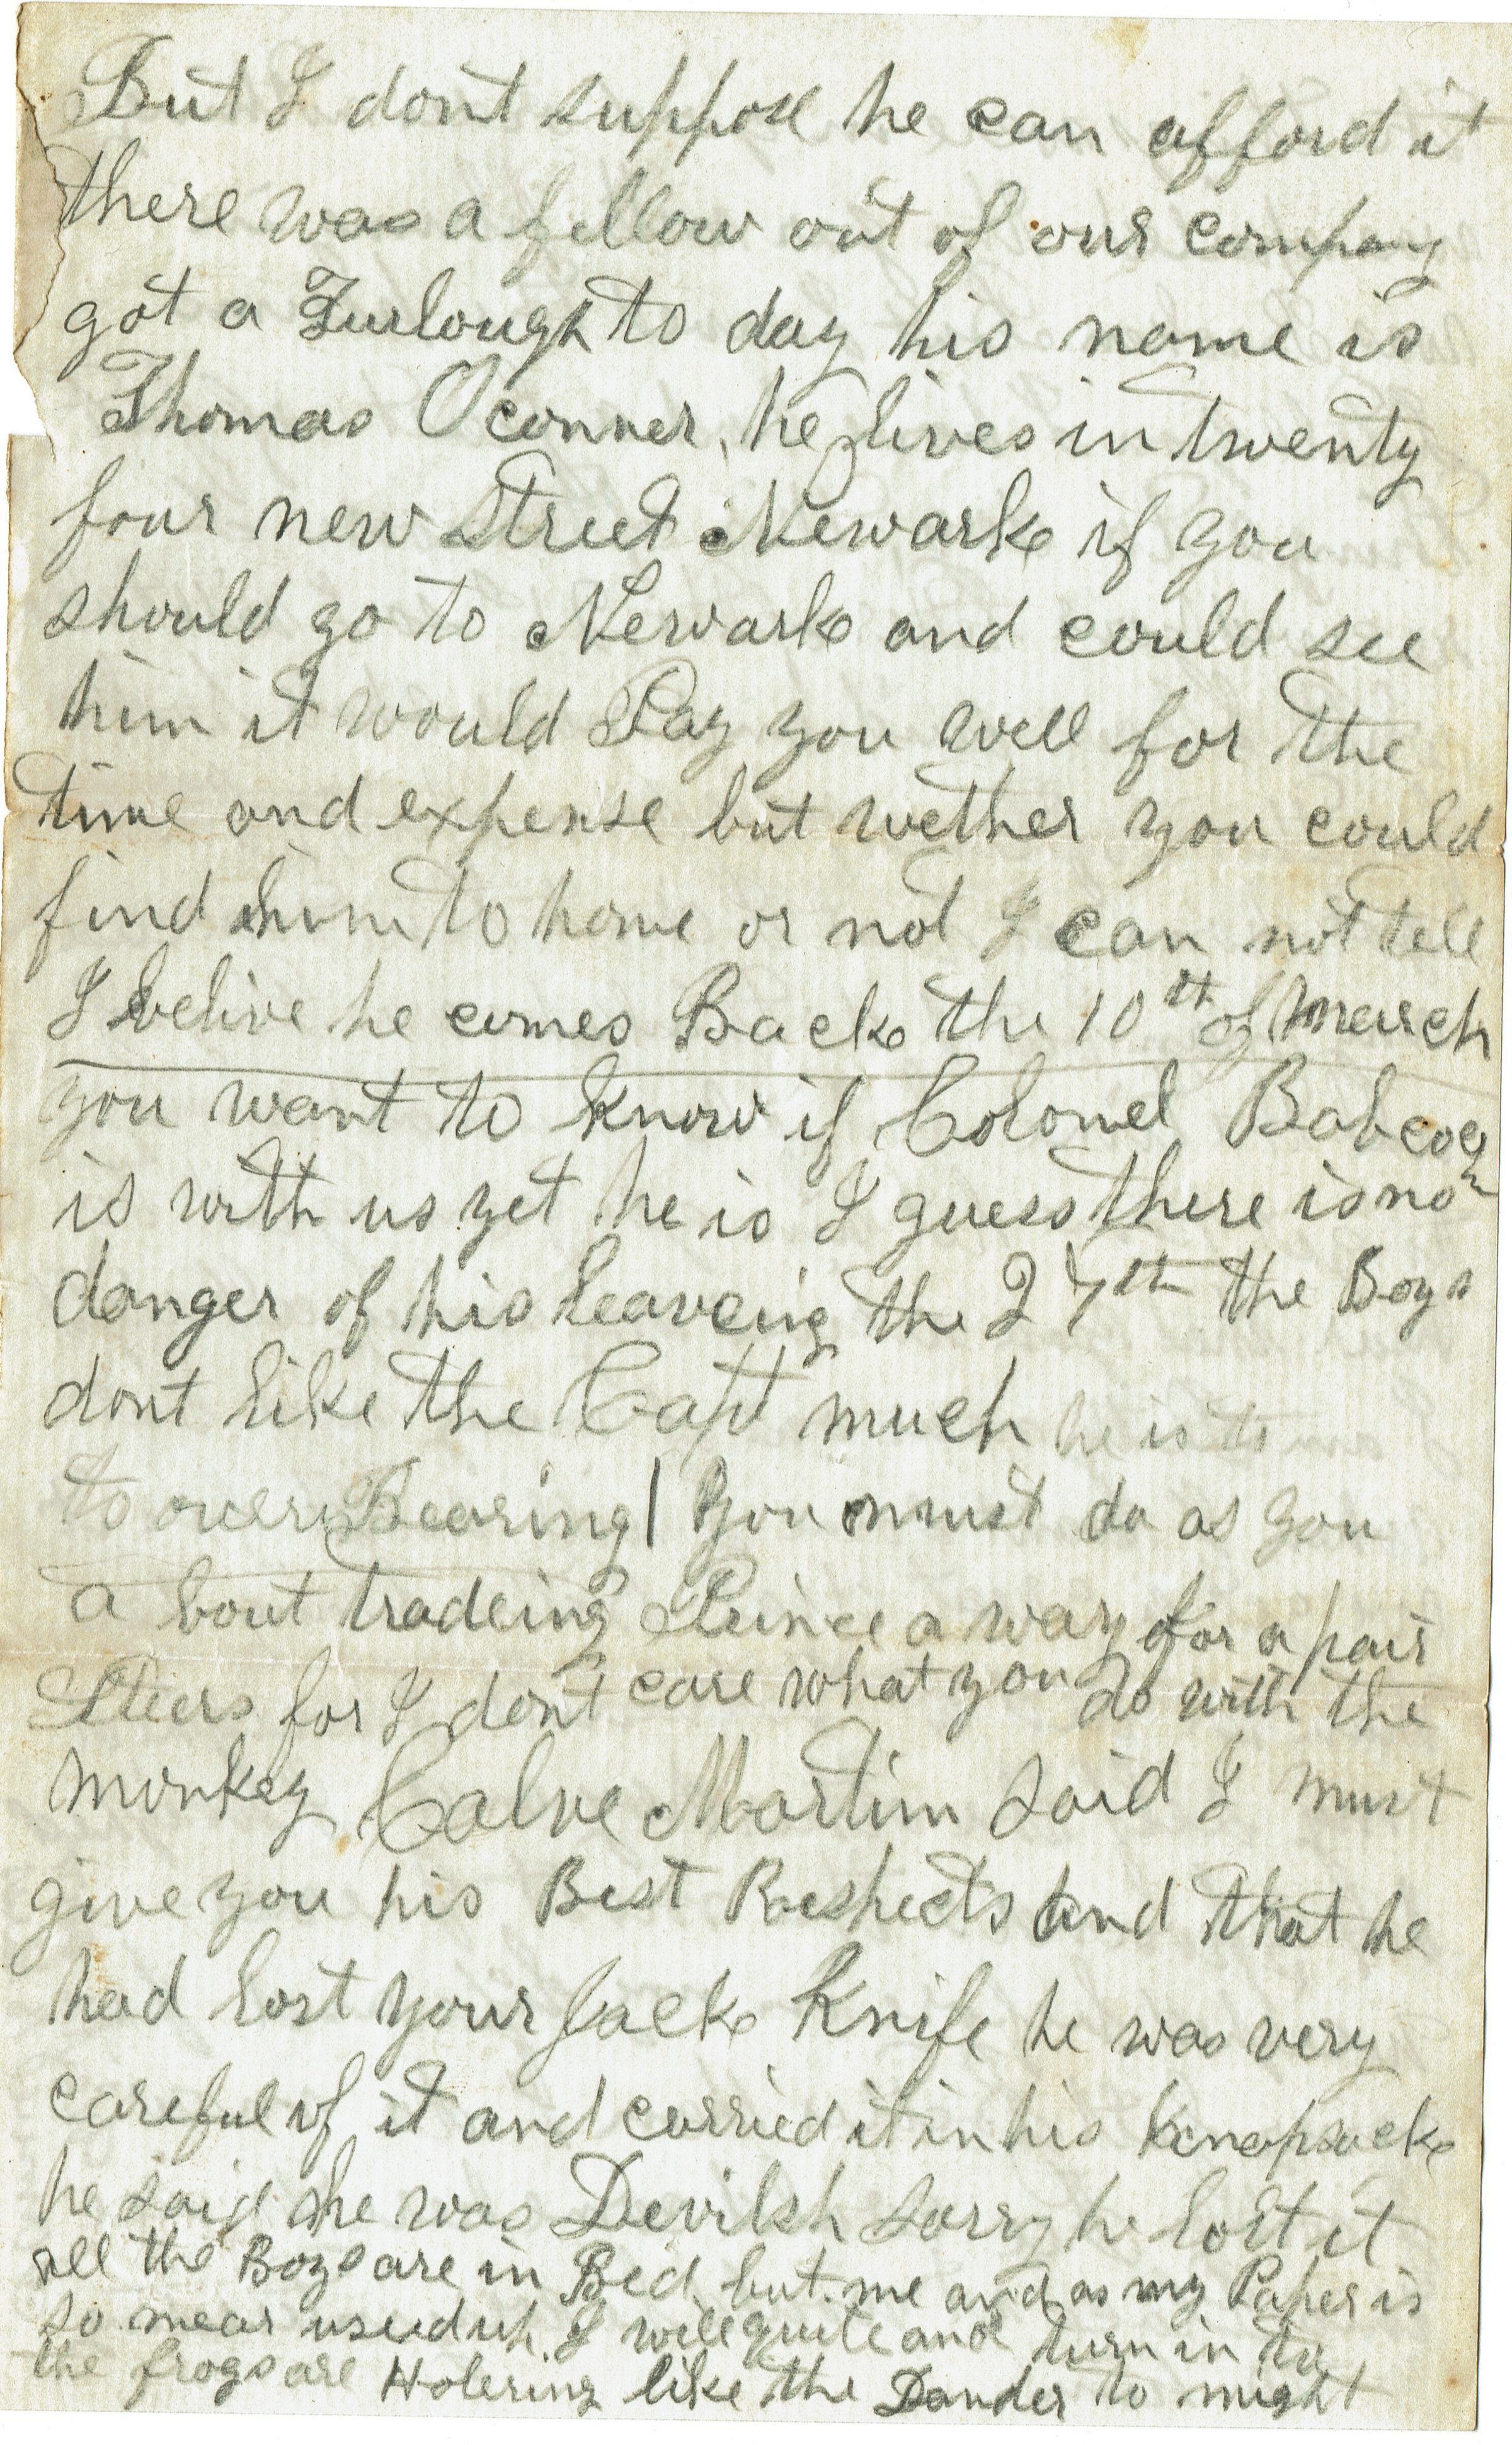 But I dont suppose he can afford it
there was a fellow out of our company
got a Furlough to day his name is
Thomas Oconner, he lives in twenty
four new Street Newark if you
should go to Newark and could see
him it would Pay you well for the
time and expense but wether you could
find him to home or not I can not tell
I belive he comes Back the 10th of March
you want to know if Colonel Babcock
is with us yet he is I guess there is no
danger of his leaveing the 27th the Boys
dont like the Capt much he is to
to over Bearing | you must do as you
a bout tradeing Prince a way for a pair
Steers for I dont care what you do with the
monkey Calve Martin said I must
give you his Best Respects and that he
had lost your Jack Knife he was very
careful of it and carried it in his knapsack
he said he was Devilsh sorry he lost it
all the Boys are in Bed but me and as my Paper is
so near used up I will quite and turn in to
the frogs are Holering like the Dander to night